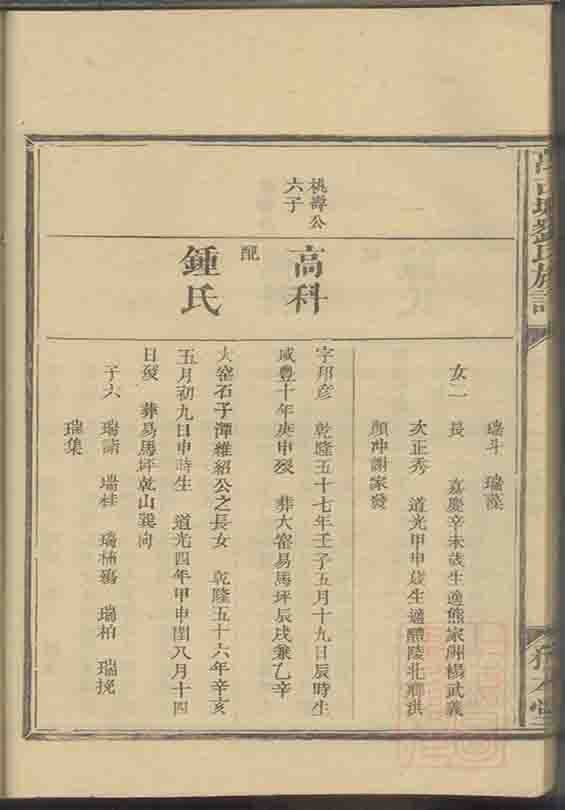 劉氏族譜
瑞斗　瑞藻
女二　長　嘉慶辛未歲生適熊家洲楊武義
次正秀　道光甲申歲生適醴陵北鄉洪
顏冲謝家發
桃壽公
六子
高科
字邦彥　乾隆五十七年壬子五月十九日辰時生
咸豐十年庚申歿　葬大窰易馬坪辰戌兼乙辛
配
鍾氏
大窰石子潭維紹公之長女　乾隆五十六年辛亥
五月初九日申時生　道光四年甲申閏八月十四
日歿　葬易馬坪乾山巽向
子六　瑞　瑞桂　瑞楠殤　瑞柏　瑞挽
瑞集